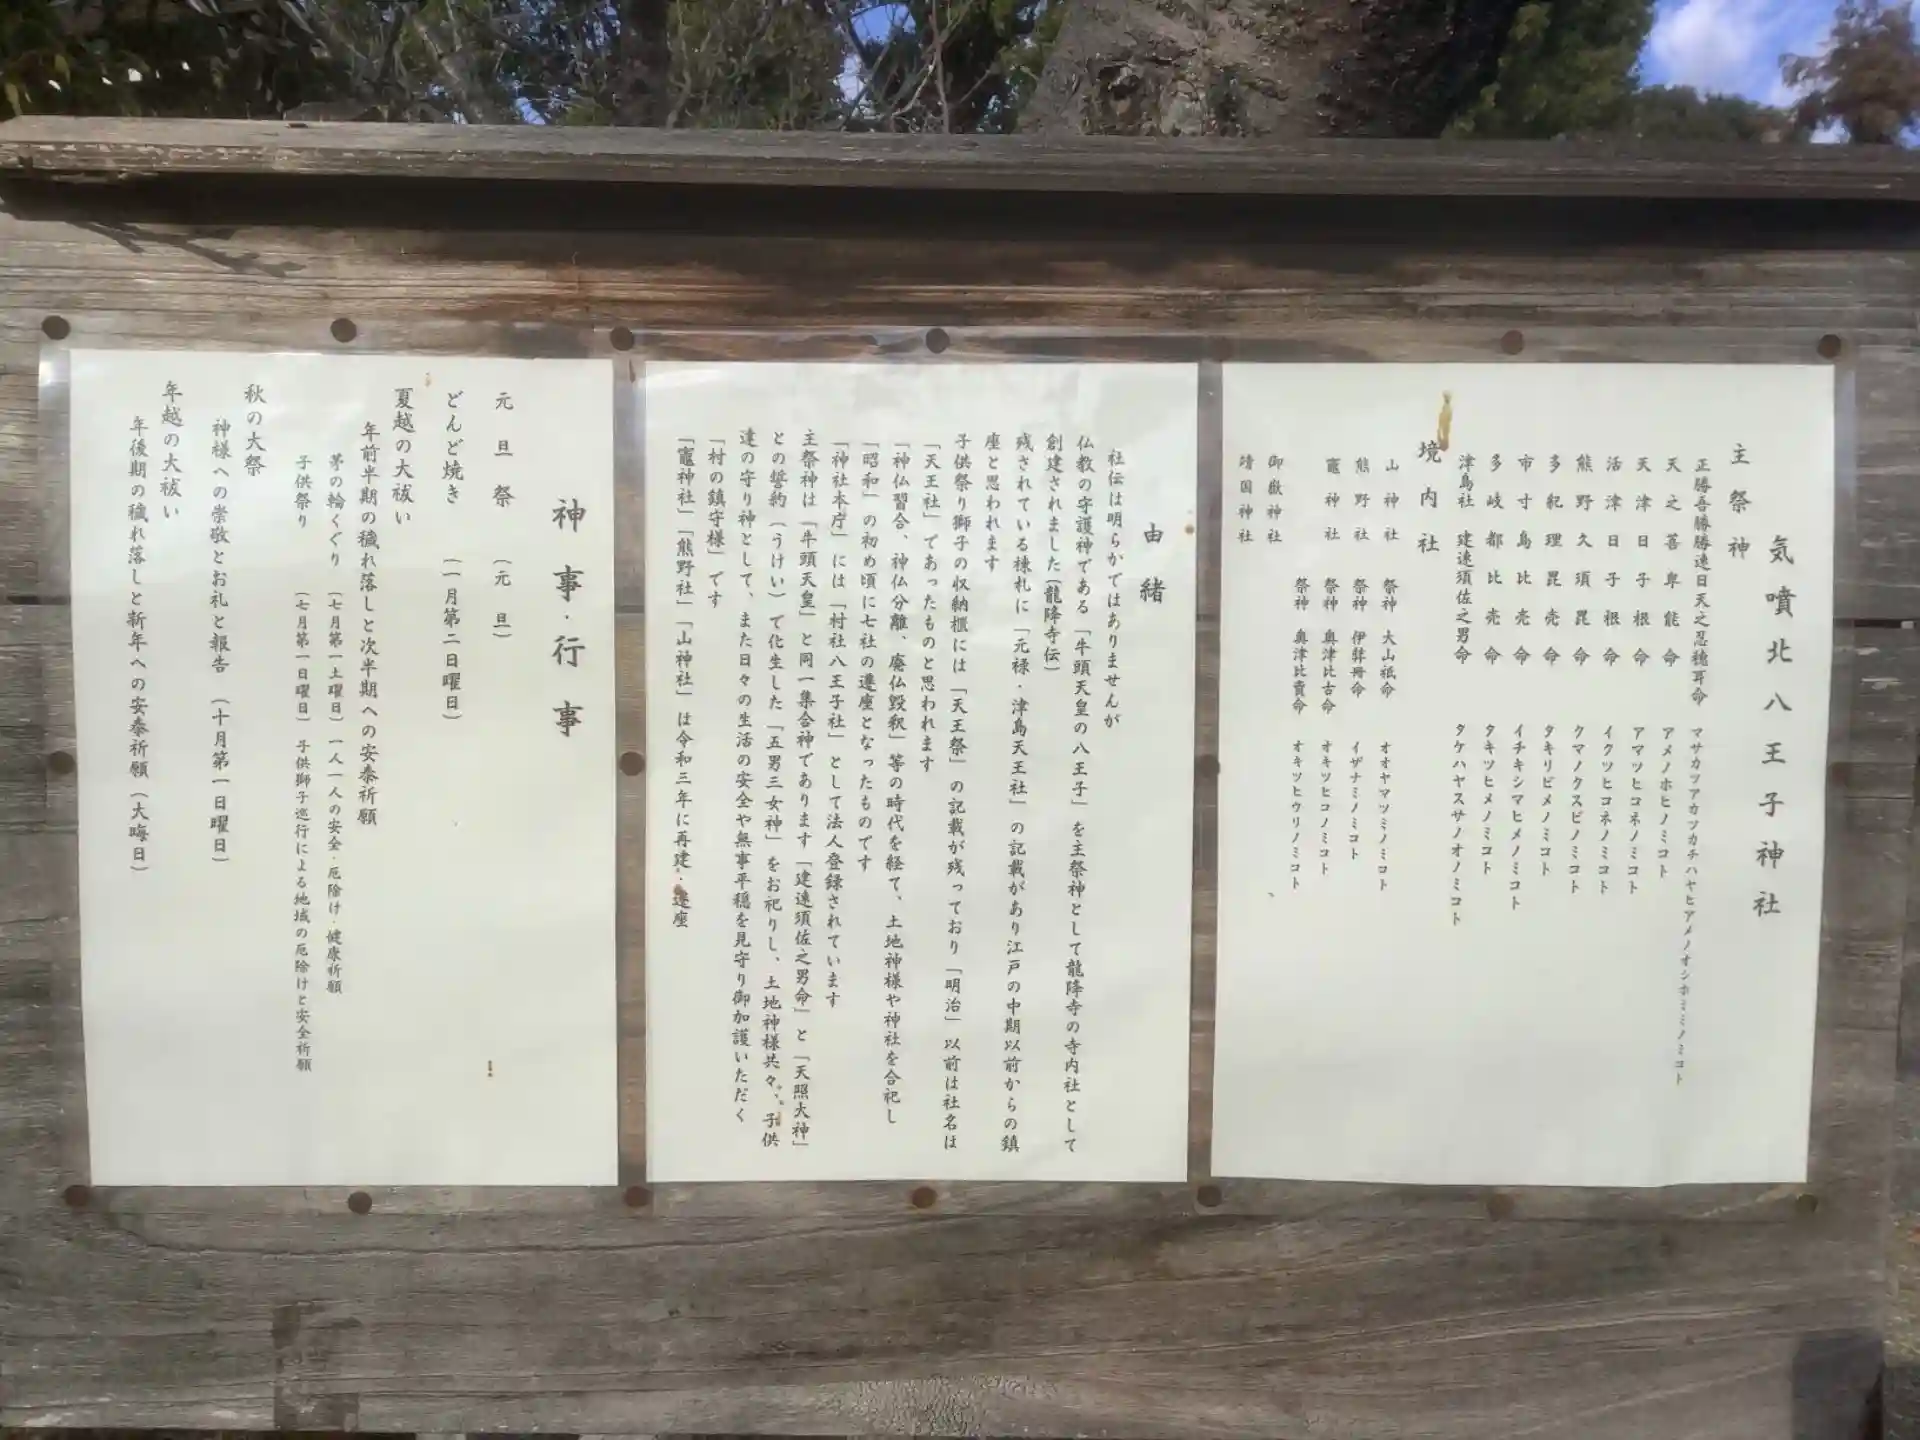 気噴北八王子神社
主祭神
正勝吾勝勝速日天之忍穂耳命 マサカツアカツカチハヤヒアメノオシホミミノミコト
天之菩卑能命 アメノホヒノミコト
天津日子根命 アマツヒコネノミコト
活津日子根命 イクツヒコネノミコト
熊野久須毘命 クマノクスビノミコト
多紀理毘売命 タキリビメノミコト
市寸島比売命 イチキシマヒメノミコト
多岐都比売命 タキツヒメノミコト
津島社 建速須佐之男命 タケハヤスサノオノミコト
境内社
山神社 祭神 大山祇命 オオヤマツミノミコト
熊野社 祭神 伊弉冊命 イザナミノミコト
竈神社 祭神 奥津比古命 オキツヒコノミコト
祭神 奥津比賣命 オキツヒウリノミコト
御嶽神社
靖国神社
由緒
社伝は明らかではありませんが
仏教の守護神である「牛頭天皇の八王子」を主祭神として龍降寺の寺内社として
創建されました(龍降寺伝)
残されている棟札に「元禄・津島天王社」の記載があり江戸の中期以前からの鎮
座と思われます
子供祭り獅子の収納櫃には「天王祭」の記載が残っており「明治」以前は社名は
「天王社」であったものと思われます
「神仏習合、神仏分離、廃仏毀釈」等の時代を経て、土地神様や神社を合祀し
「昭和」の初め頃に七社の遷座となったものです
「神社本庁」には「村社八王子社」として法人登録されています
主祭神は「牛頭天皇」と同一集合神であります「建速須佐之男命」と「天照大神」
との誓約(うけい)で化生した「五男三女神」をお祀りし、土地神様共々、子供
達の守り神として、また日々の生活の安全や無事平穏を見守り御加護いただく
「村の鎮守様」です
「竈神社」「熊野社」「山神社」は令和三年に再建・遷座
神事・行事
元旦祭 (元旦)
どんど焼き (一月第二日曜日)
夏越の大祓い
年前半期の穢れ落しと次半期への安泰祈願
茅の輪くぐり (七月第一土曜日) 一人一人の安全・厄除け・健康祈願
子供祭り (七月第一日曜日) 子供獅子巡行による地域の厄除けと安全祈願
秋の大祭
神様への崇敬とお礼と報告 (十月第一日曜日)
年越の大祓い
年後期の穢れ落しと新年への安泰祈願(大晦日)